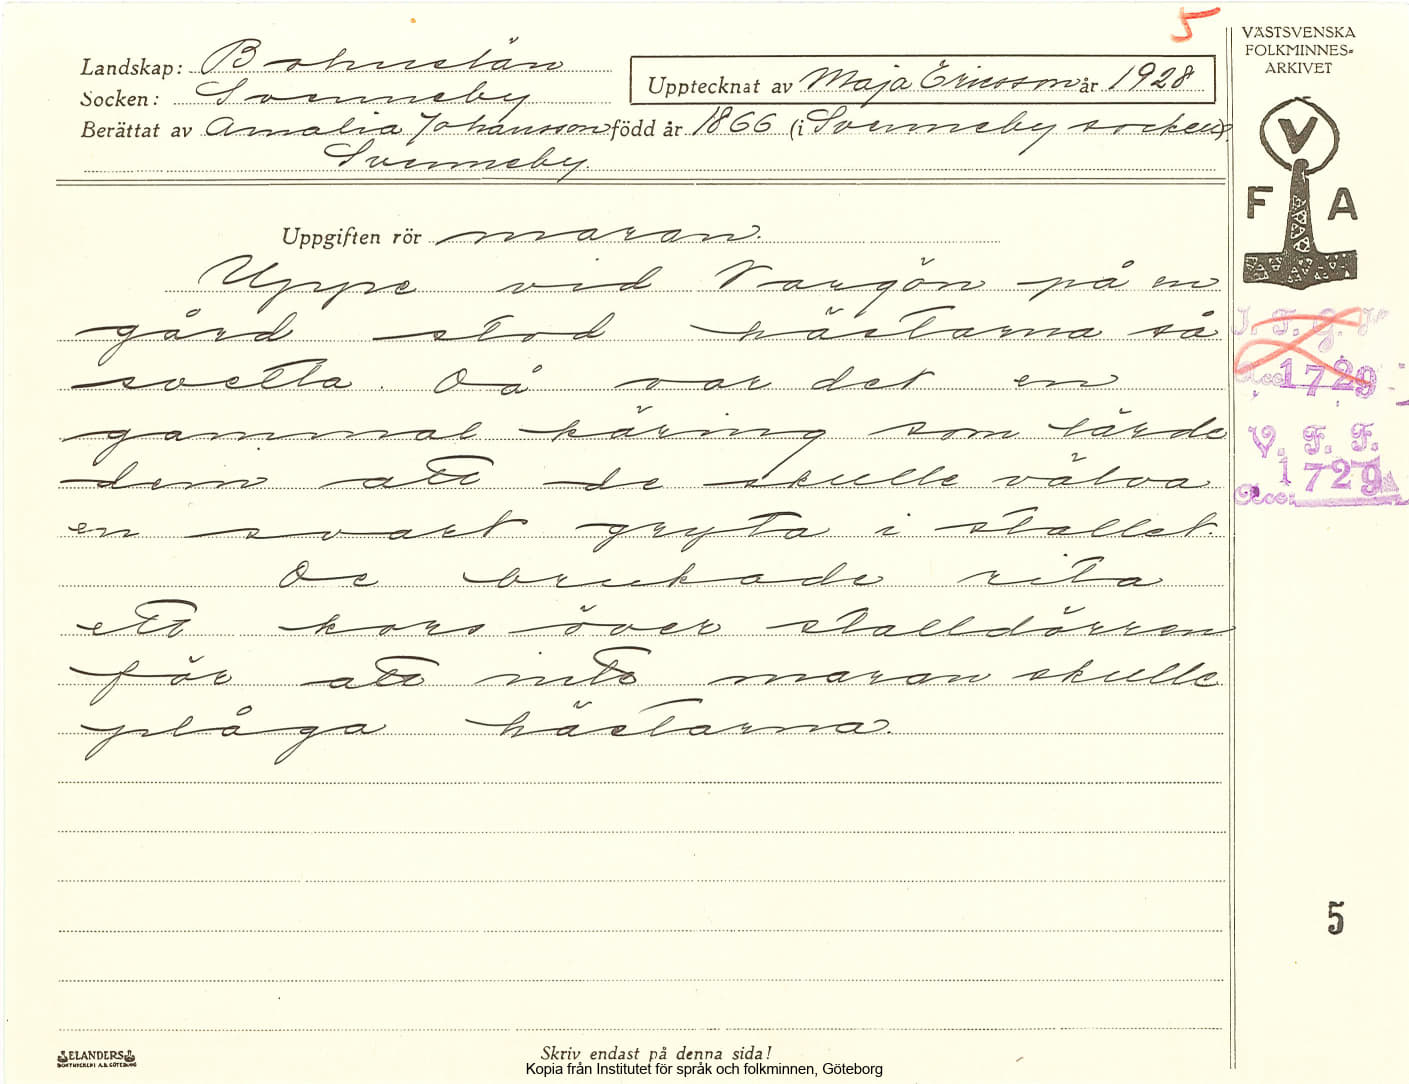 5
VÄSTSVENSKA
FOLKMINNES-
ARKIVET
Landskap: Bohuslän
Socken: Svenneby
Upptecknat av Maja Ericsson år 1928
Berättat av Amalia Johansson född år 1866 (i Svenneby socken)
Svenneby.
V
F A
Uppgiften rör maran.
Uppe vid Vargön på en
gård stod hästarna så
svetta. Då var det en
gammal käring som lärde
dem att de skulle välva
en svart gryta i stallet.
De brukade rita
ett kors över stalldörren
för att inte maran skulle
plåga hästarna.
Acc 1729
V. F. F.
1729
Acc:
5
ELANDERS
Skriv endast på denna sida!
Kopia från Institutet för språk och folkminnen, Göteborg